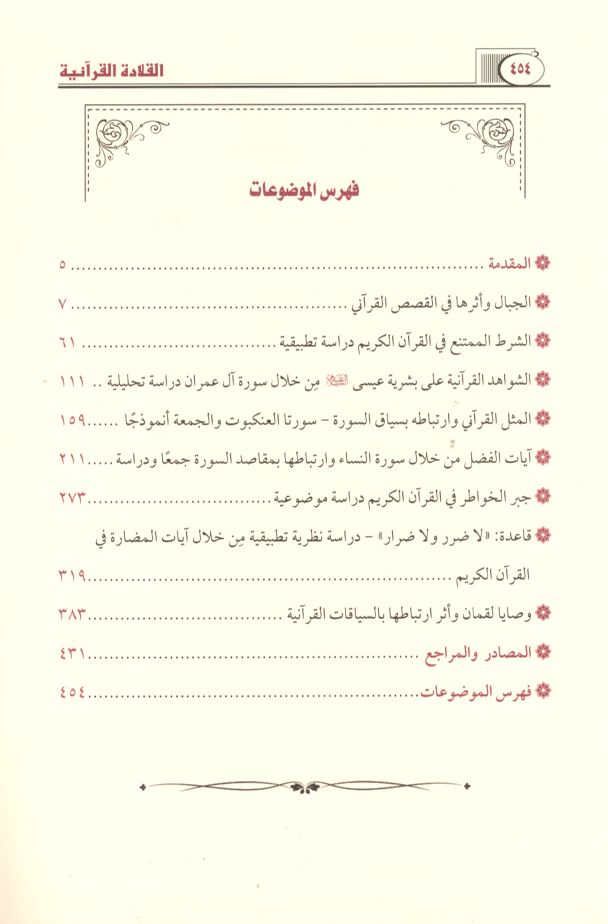 ٤٥٤
القلادة القرآنية
فهرس الموضوعات
المقدمة ........ ٥
الجبال وأثرها في القصص القرآني ........ ٧
الشرط الممتنع في القرآن الكريم دراسة تطبيقية ........ ٦١
الشواهد القرآنية على بشرية عيسى مِن خلال سورة آل عمران دراسة تحليلية .. ١١١
المثل القرآني وارتباطه بسياق السورة – سورتا العنكبوت والجمعة أنموذجًا ...... ١٥٩
آيات الفضل من خلال سورة النساء وارتباطها بمقاصد السورة جمعًا ودراسة ..... ٢١١
جبر الخواطر في القرآن الكريم دراسة موضوعية ........ ٢٧٣
قاعدة: «لا ضرر ولا ضرار» – دراسة نظرية تطبيقية مِن خلال آيات المضارة في
القرآن الكريم ........ ٣١٩
وصايا لقمان وأثر ارتباطها بالسياقات القرآنية ........ ٣٨٣
المصادر والمراجع ........ ٤٣١
فهرس الموضوعات ........ ٤٥٤